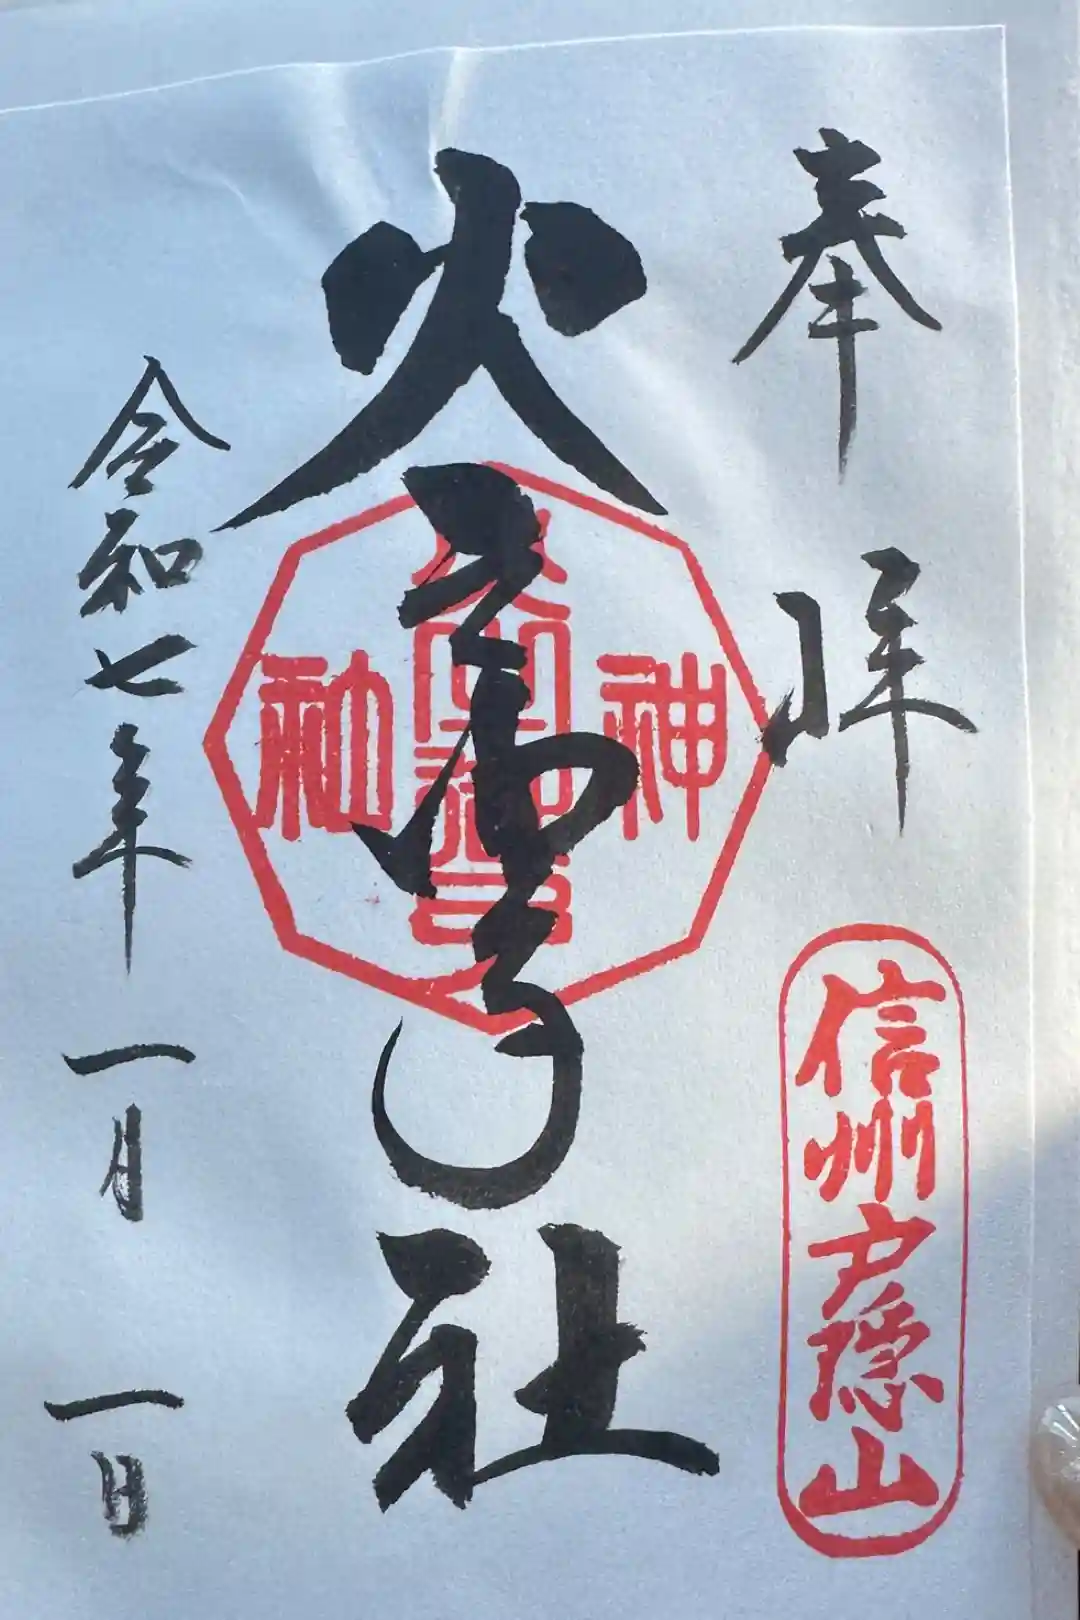 奉拝
信州戸隠山
火之御子社
神
社
令和七年一月一日